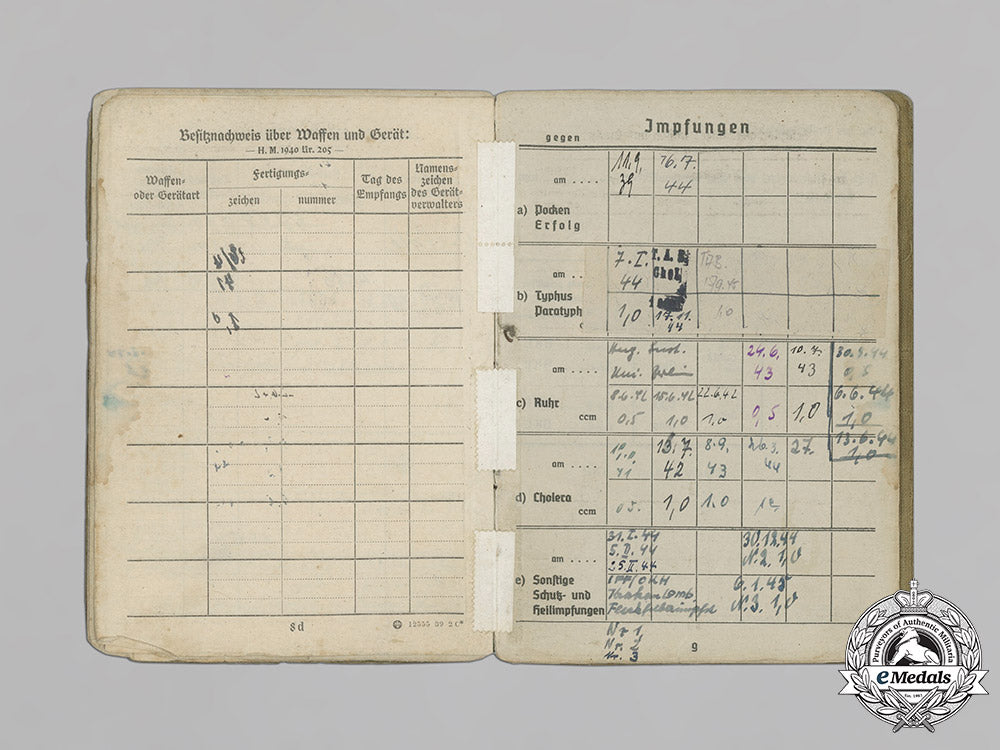 Besitznachweis über Waffen und Gerät:
— H. M. 1940 Nr. 205 —
Waffen-
oder Gerätart
Fertigungs-
zeichen
nummer
Tag des
Empfangs
Namens-
zeichen
des Gerät-
verwalters
8d
12555 39 2 C*
Impfungen
gegen
am . . . .
11.9. 16.7
39 44
a) Pocken
Erfolg
am . .
7. I. T. A. B. TAB.
44 Chol.
b) Typhus
Paratyph
1,0 17.11. 1.0
44
c
am . . . .
24.6. 10.7. 30.5.44
43 43 0,5
c) Ruhr
8.6.42 15.6.42 22.6.42 6.6.44
ccm
0,5 1,0 1.0 0,5 1,0 1,0
13.6.44
1,0
am . . . .
13.7 8.9. 26.3. 27.
41 42 43 44
d) Cholera
ccm
0.5. 1,0 1.0
am . . . .
31.I.44 30.12.44
5.II.44 N.2. 1,0
25.II.44
e) Sonstige
Schutz- und
Heilimpfungen
IFF/OKH 6.1.45
N.3. 1,0
Nr 1
Nr. 2
Nr. 3
9
Purveyors of Authentic Militaria
eMedals